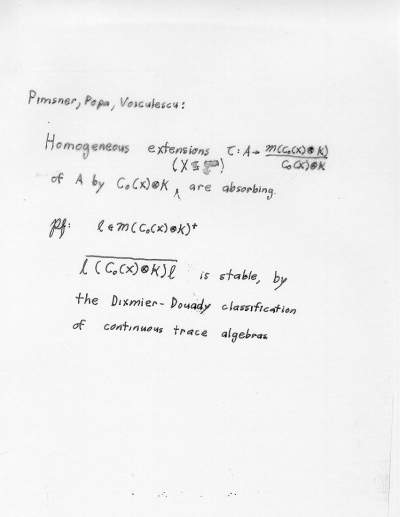 Pimsner, Popa, Voiculescu:
Homogeneous extensions τ: A → M(C₀(X)⊗K) / C₀(X)⊗K
(X ⊆
of A by C₀(X)⊗K ∧ are absorbing.
Pf: l ∈ M(C₀(X)⊗K)⁺
l (C₀(X)⊗K) l is stable, by
the Dixmier-Douady classification
of continuous trace algebras